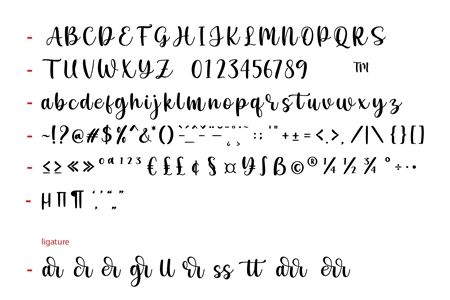 - ABCDEFGHIJKLMNOPQRS
- TUVWXYZ 0123456789 ™
- abcdefghijklmnopqrstuvwxyz
- ~!?@#$%^&*() :; '" + ± = < . > , / | \ { } [ ]
- ≤ ≥ « » º ª ¹ ² ³ € £ £ ¢ § ¤ ¥ ß © ® ¼ ½ ¾ ° ÷ · •
- µ π ¶ ‘ ’ “ ” , „
ligature
- ar cr er gr ll rr ss tt arr err